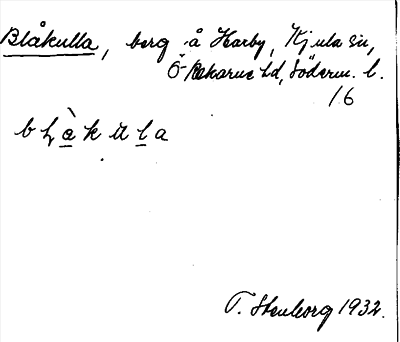 Blåkulla, berg å Harby, Kjula sn,
Ö. Rekarne hd, Söderm. l.
16
T. Stenborg 1932.